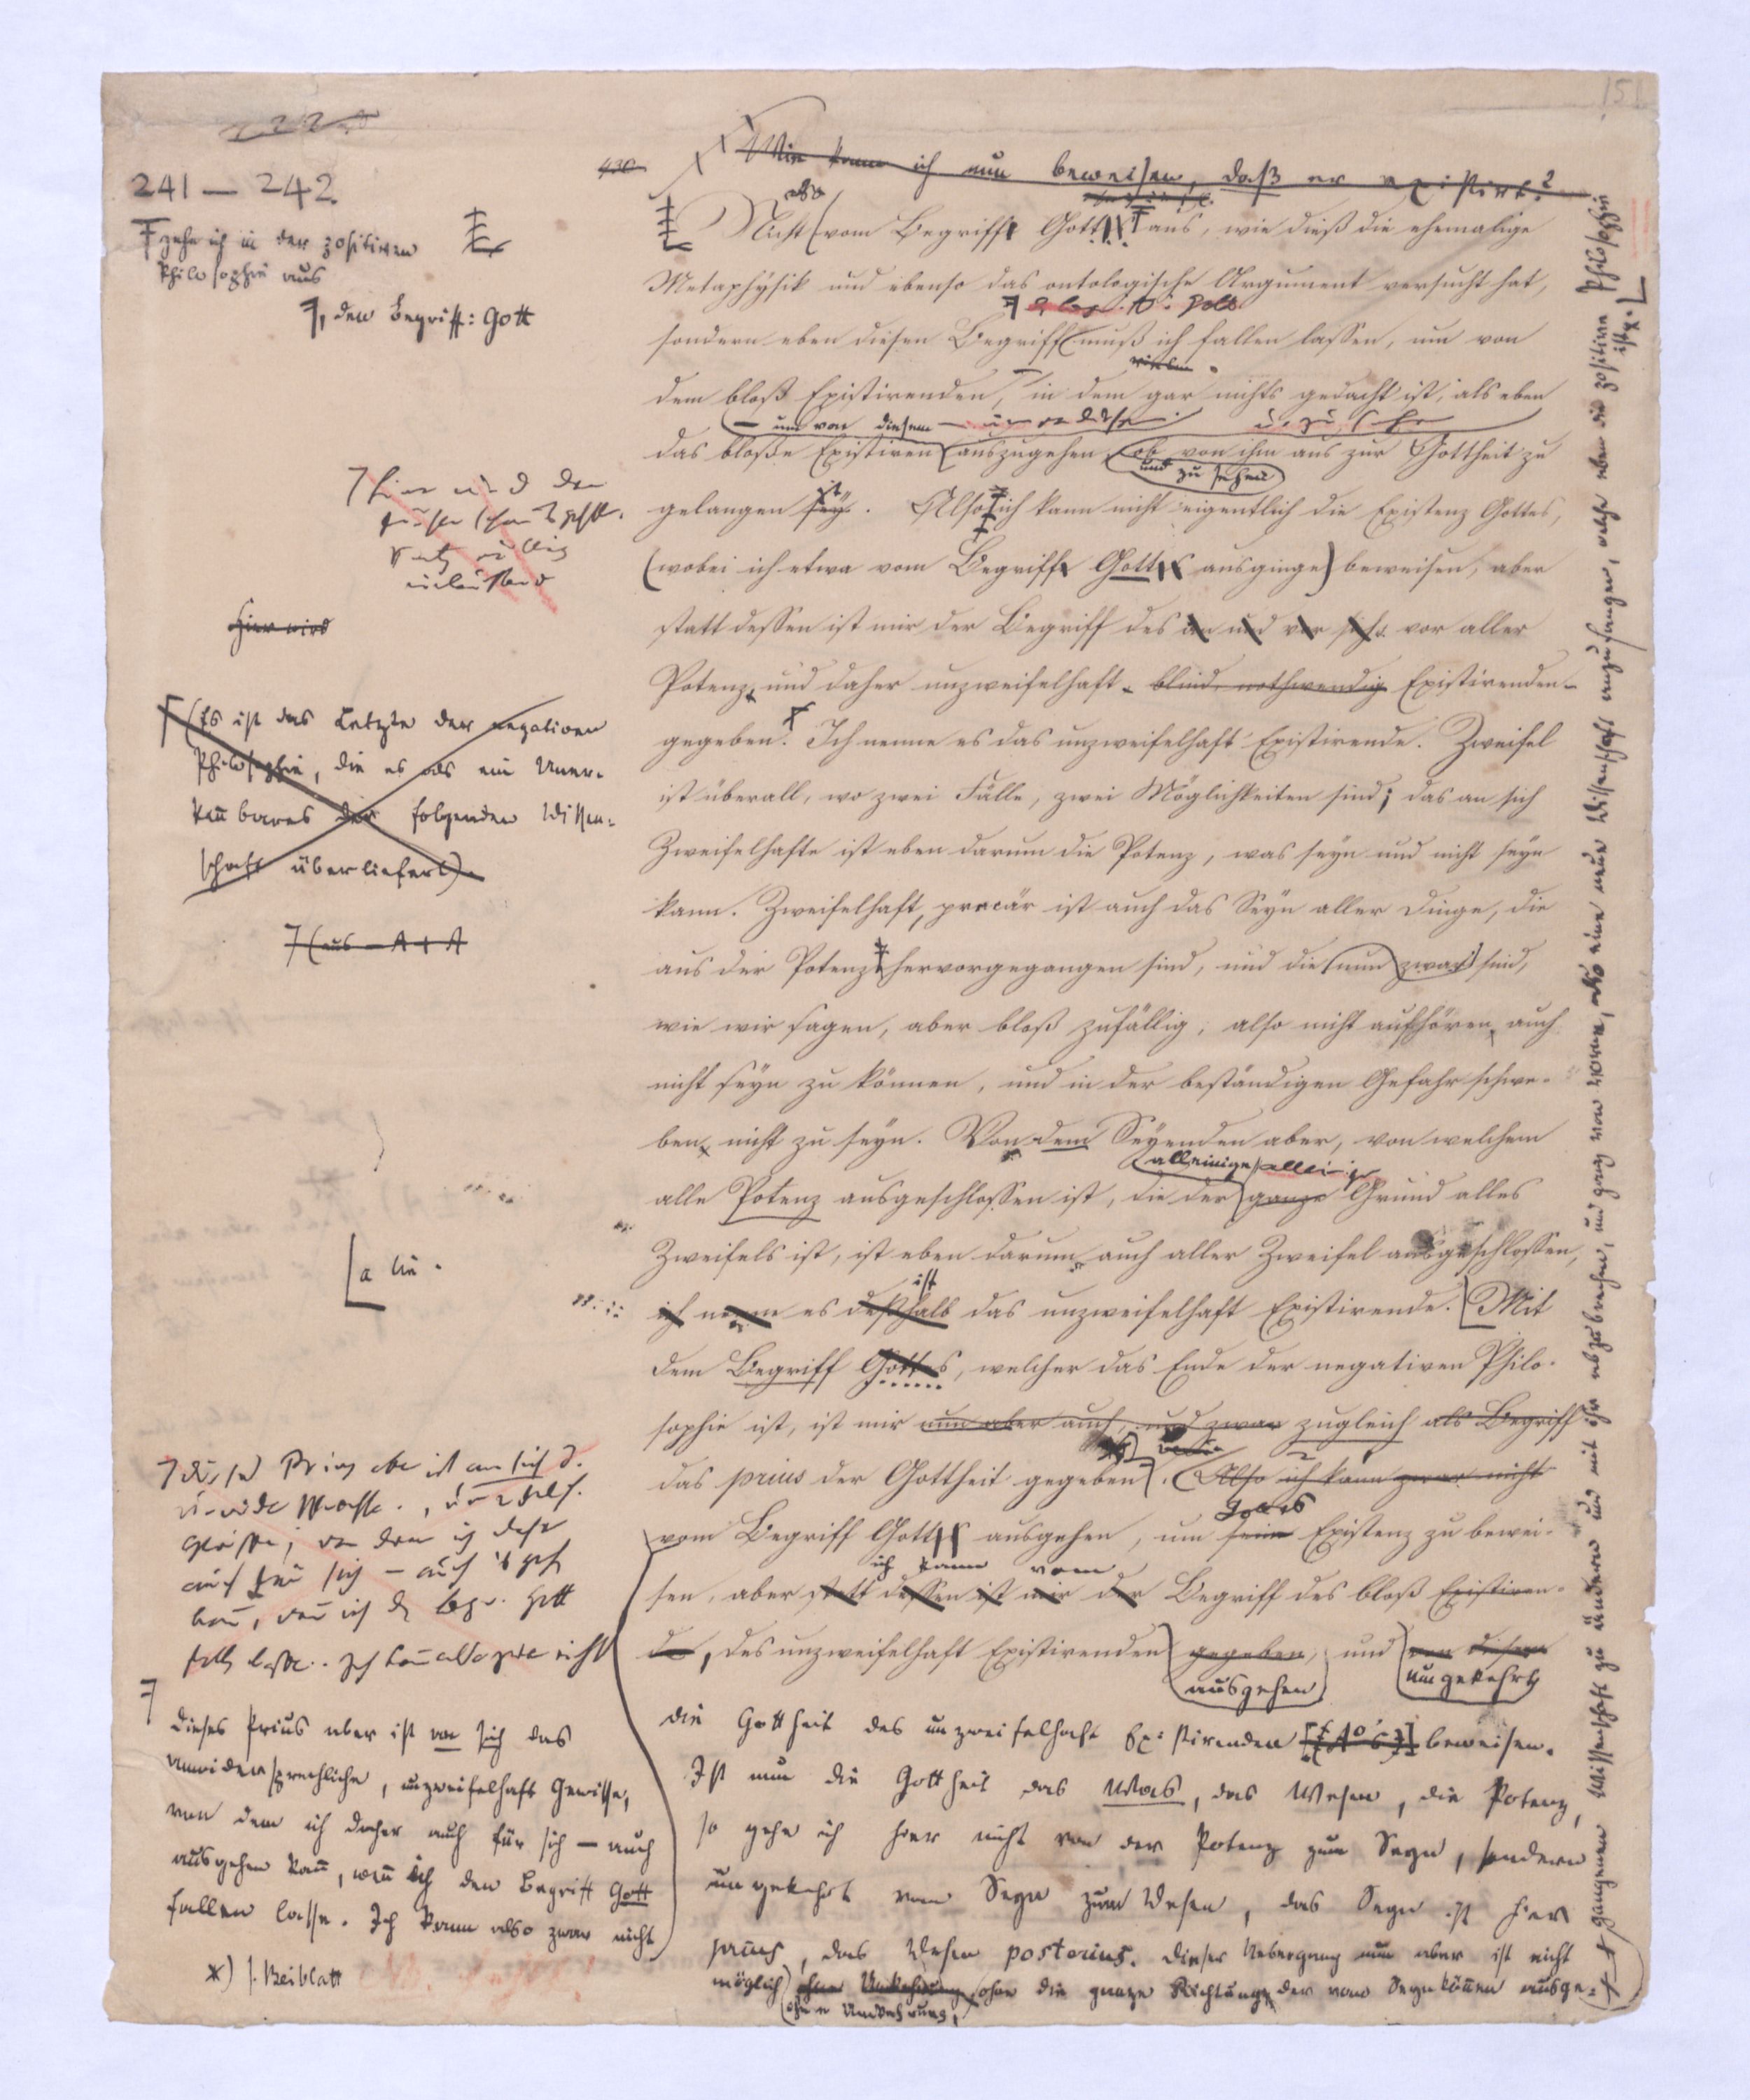 151
241 — 242
430
Wie kann ich nun beweisen, daß er existirt?
Ŧ gehe ich in der positiven
Philosophie aus
7, den Begriff: Gott
aber
Nicht (vom Begriff Gott aus, wie dieß die ehemalige
Metaphysik und ebenso das ontologische Argument versucht hat,
sondern eben diesen Begriff muß ich fallen lassen, um von
dem bloß Existirenden, in dem gar nichts gedacht ist, als eben
— um von diesem —
das bloße Existiren auszugehen, ob von ihm aus zur Gottheit zu
und zu sehen
gelangen ist. Also ich kann nicht eigentlich die Existenz Gottes,
(wobei ich etwa vom Begriff Gott ausginge) beweisen, aber
statt dessen ist mir der Begriff des an und vor sich vor aller
Hier wird
Potenz und daher unzweifelhaft - blind nothwendig Existirenden -
gegeben. Ich nenne es das unzweifelhaft Existirende. Zweifel
ist überall, wo zwei Fälle, zwei Möglichkeiten sind; das an sich
Zweifelhafte ist eben darum die Potenz, was seyn und nicht seyn
kann. Zweifelhaft, precär ist auch das Seyn aller Dinge, die
aus der Potenz hervorgegangen sind, und die (nun zwar) sind,
wie wir sagen, aber bloß zufällig, also nicht aufhören, auch
nicht seyn zu können, und in der beständigen Gefahr schwe-
ben, nicht zu seyn. Von dem Seyenden aber, von welchem
alleinige
alle Potenz ausgeschlossen ist, die der ganze Grund alles
Zweifels ist, ist eben darum auch aller Zweifel ausgeschlossen,
ist
ich nenne es deßhalb das unzweifelhaft Existirende. [Mit
dem Begriff Gottes, welcher das Ende der negativen Philo-
sophie ist, ist mir nun aber auch, und zwar zugleich als Begriff
das prius der Gottheit gegeben. (Also ich kann zwar nicht
Gottes
vom Begriff Gott ausgehen, um seine Existenz zu bewei-
ich kann vom
sen, aber statt dessen ist mir der Begriff des bloß Existiren-
den, des unzweifelhaft Existirenden gegeben, und von diesem
ausgehen umgekehrt
die Gottheit des unzweifelhaft Existirenden beweisen.
Ist nun die Gottheit das Was, das Wesen, die Potenz,
so gehe ich hier nicht von der Potenz zum Seyn, sondern
umgekehrt vom Seyn zum Wesen, das Seyn ist hier
prius, das Wesen posterius. Dieser Uebergang nun aber ist nicht
möglich ohne Umkehrung, ohne die ganze Richtung der vom Seynkönnen ausge-
(ohne Umkehrung,
gangenen Wissenschaft zu ändern und mit ihr abzubrechen, und ganz von vorne, also eine neue Wissenschaft anzufangen, welche eben die positive Philosophie
ist.
Γ (Es ist das Letzte der negativen
Philosophie, die es als ein Uner-
kañbares der folgenden Wissen-
schaft überliefert).
7 (aus – A + A
[a lin.
7 dieses Prius aber ist an sich d.
7
Dieses Prius aber ist an sich das
unwidersprechliche, unzweifelhaft Gewisse,
von dem ich daher auch für sich – auch
ausgehen kañ, weñ ich den Begriff Gott
fallen lasse. Ich kann also zwar nicht
*) s. Beiblatt